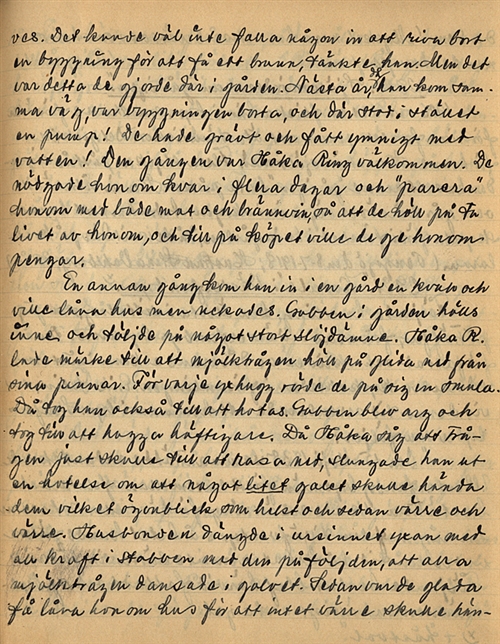 ves. Det kunde väl inte falla någon in att riva bort
en byggning för att få ett brunn, tänkte han. Men det
var detta de gjorde där i gården. Nästa år, då han kom sam-
ma väg, var byggningen borta, och där stod i stället
en pump! De hade grävt och fått ymnigt med
vatten! Den gången var Håka Ring välkommen. De
nödgade honom kvar i flera dagar och "parera"
honom med både mat och brännvin, så att de höll på ta
livet av honom, och till på köpet ville de ge honom
pengar.
En annan gång kom han in i en gård en kväll och
ville låna hus men nekades. Gubben i gården hölls
inne och täljde på något stort slöjdämne. Håka R.
lade märke till att mjölktrågen höll på glida ned från
sina pinnar. För varje yxhugg rörde de på sig en smula.
Då tog han också till att hotas. Gubben blev arg och
tog till att hugga häftigare. Då Håka såg att trå-
gen just skulle till att rasa ned, slungade han ut
en hotelse om att något litet galet skulle hända
dem vilket ögonblick som helst och sedan värre och
värre. Husbonden dängde i ursinnet yxan med
all kraft i stabben med den påföljden, att alla
mjölktrågen dansade i golvet. Sedan voro de glada
få låna honom hus för att intet värre skulle hän-